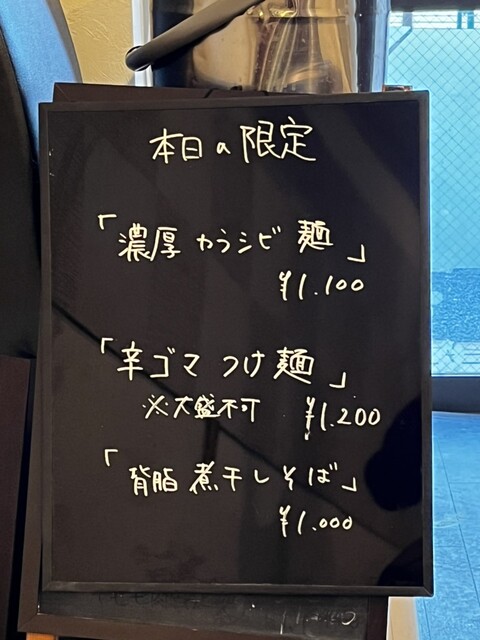 本日の限定
「濃厚カラシビ麺」
¥1.100
「辛ゴマつけ麺」
※大盛不可 ¥1.200
「背脂煮干しそば」
¥1.000